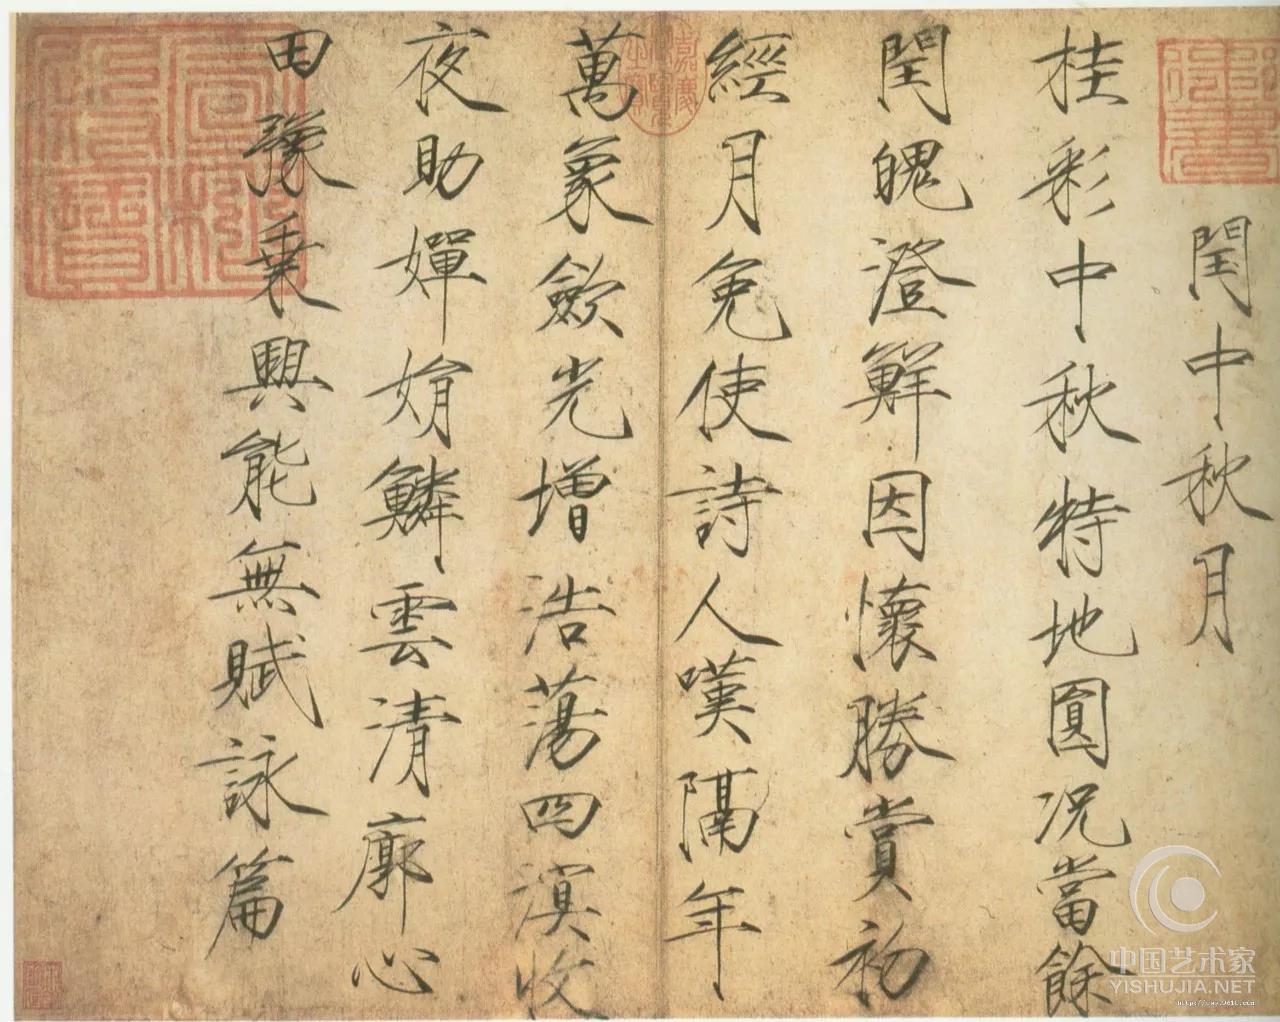 閏中秋月
桂彩中秋特地圓况當餘
閏魄澄鮮因懷勝賞初
經月免使詩人嘆隔年
萬象斂光增浩蕩四溟收
夜助嬋娟鱗雲清廓心
田豫乘興能無賦詠篇
嘉慶御覽之寶
中国艺术家
YISHUJIA.NET